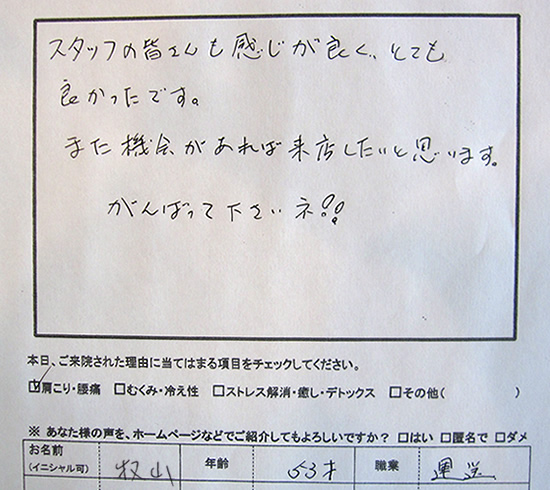 スタッフの皆さんも感じが良く、とても
良かったです。
また機会があれば来店したいと思います。
がんばって下さいネ!!
本日、ご来院された理由に当てはまる項目をチェックしてください。
☑肩こり・腰痛 □むくみ・冷え性 □ストレス解消・癒し・デトックス □その他( )
※ あなた様の声を、ホームページなどでご紹介してもよろしいですか? □はい □匿名で □ダメ
お名前 (イニシャル可) 牧山 年齢 53才 職業 運送